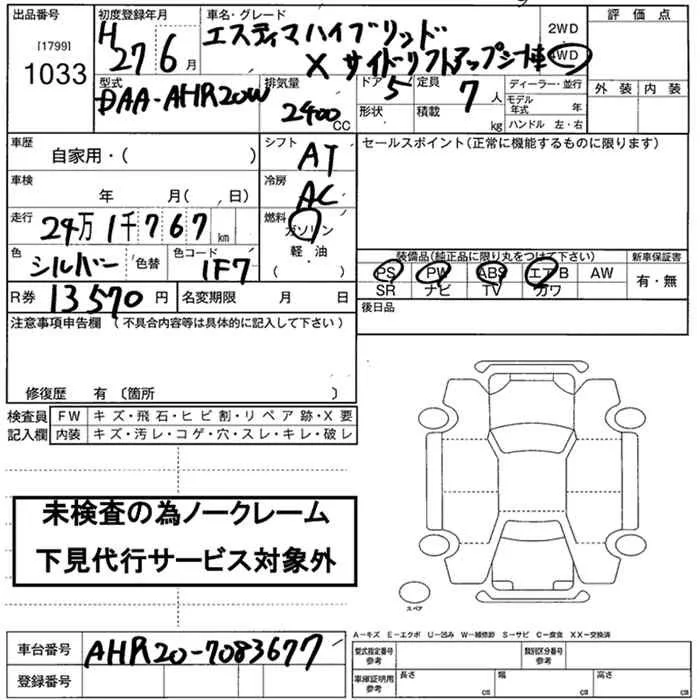 出品番号 初度登録年月 車名・グレード 評価点
[1799] H 27 6月 エスティマハイブリッド 2WD
1033 X サイドリフトアップシート車 4WD
型式 排気量 ドア 5 定員 7人 ディーラー・並行 外装 内装
DAA-AHR20W 2400 CC 形状 積載 kg モデル年式 年
ハンドル 左・右
車歴 シフト セールスポイント(正常に機能するものに限ります)
自家用・( ) AT
車検 冷房
年 月( 日) AC
走行 24万1千767 km 燃料
ガソリン
色 シルバー 色替 色コード 1F7 軽油 装備品(純正品に限り丸をつけて下さい) 新車保証書
( ) PS PW ABS エアB AW 有・無
R券 13570円 名変期限 月 日 SR ナビ TV カワ
注意事項申告欄 (不具合内容等は具体的に記入して下さい) 後日品
修復歴 有 〔箇所 〕
検査員 FW キズ・飛石・ヒビ割・リペア跡・X要
記入欄 内装 キズ・汚レ・コゲ・穴・スレ・キレ・破レ
未検査の為ノークレーム
下見代行サービス対象外
スペア
A-キズ E-エクボ U-凹み W-補修跡 S-サビ C-腐食 XX-交換済
車台番号 AHR20-7083677 型式指定番号 参考 類別区分番号 参考
登録番号 車庫証明用 参考 長さ cm 幅 cm 高さ cm